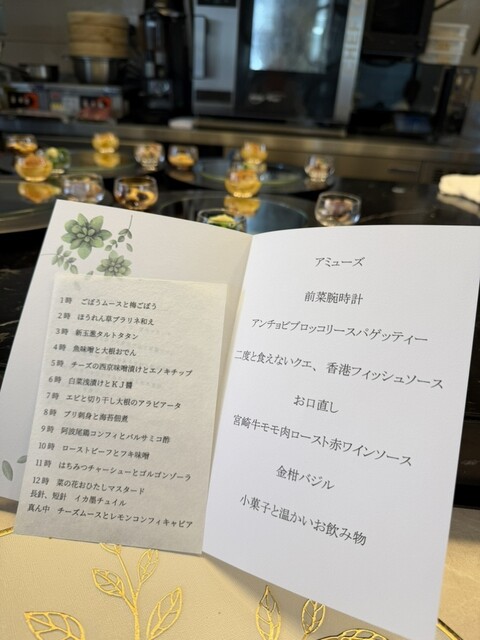 1時 ごぼうムースと梅ごぼう
2時 ほうれん草プラリネ和え
3時 新玉葱タルトタタン
4時 魚味噌と大根おでん
5時 チーズの西京味噌漬けとエノキチップ
6時 白菜浅漬けとKJ醤
7時 エビと切り干し大根のアラビアータ
8時 ブリ刺身と海苔佃煮
9時 阿波尾鶏コンフィとバルサミコ酢
10時 ローストビーフとフキ味噌
11時 はちみつチャーシューとゴルゴンゾーラ
12時 菜の花おひたしマスタード
長針、短針 イカ墨チュイル
真ん中 チーズムースとレモンコンフィキャビア
アミューズ
前菜腕時計
アンチョビブロッコリースパゲッティー
二度と食えないクエ、香港フィッシュソース
お口直し
宮崎牛モモ肉ロースト赤ワインソース
金柑バジル
小菓子と温かいお飲み物